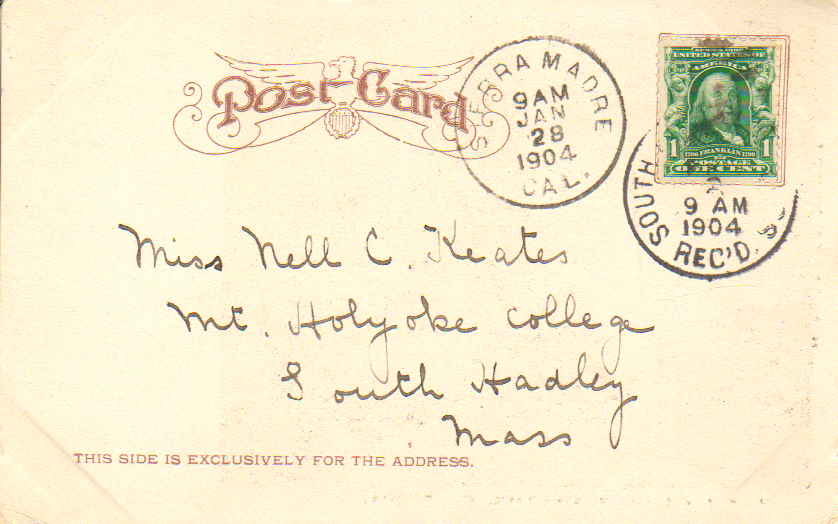 Post Card
SIERRA MADRE
9 AM
JAN
28
1904
CAL.
UNITED STATES OF
AMERICA
1 FRANKLIN 1
POSTAGE
ONE CENT
SOUTH
9 AM
1904
REC'D.
Miss Nell C. Keates
Mt. Holyoke College
South Hadley
Mass
THIS SIDE IS EXCLUSIVELY FOR THE ADDRESS.